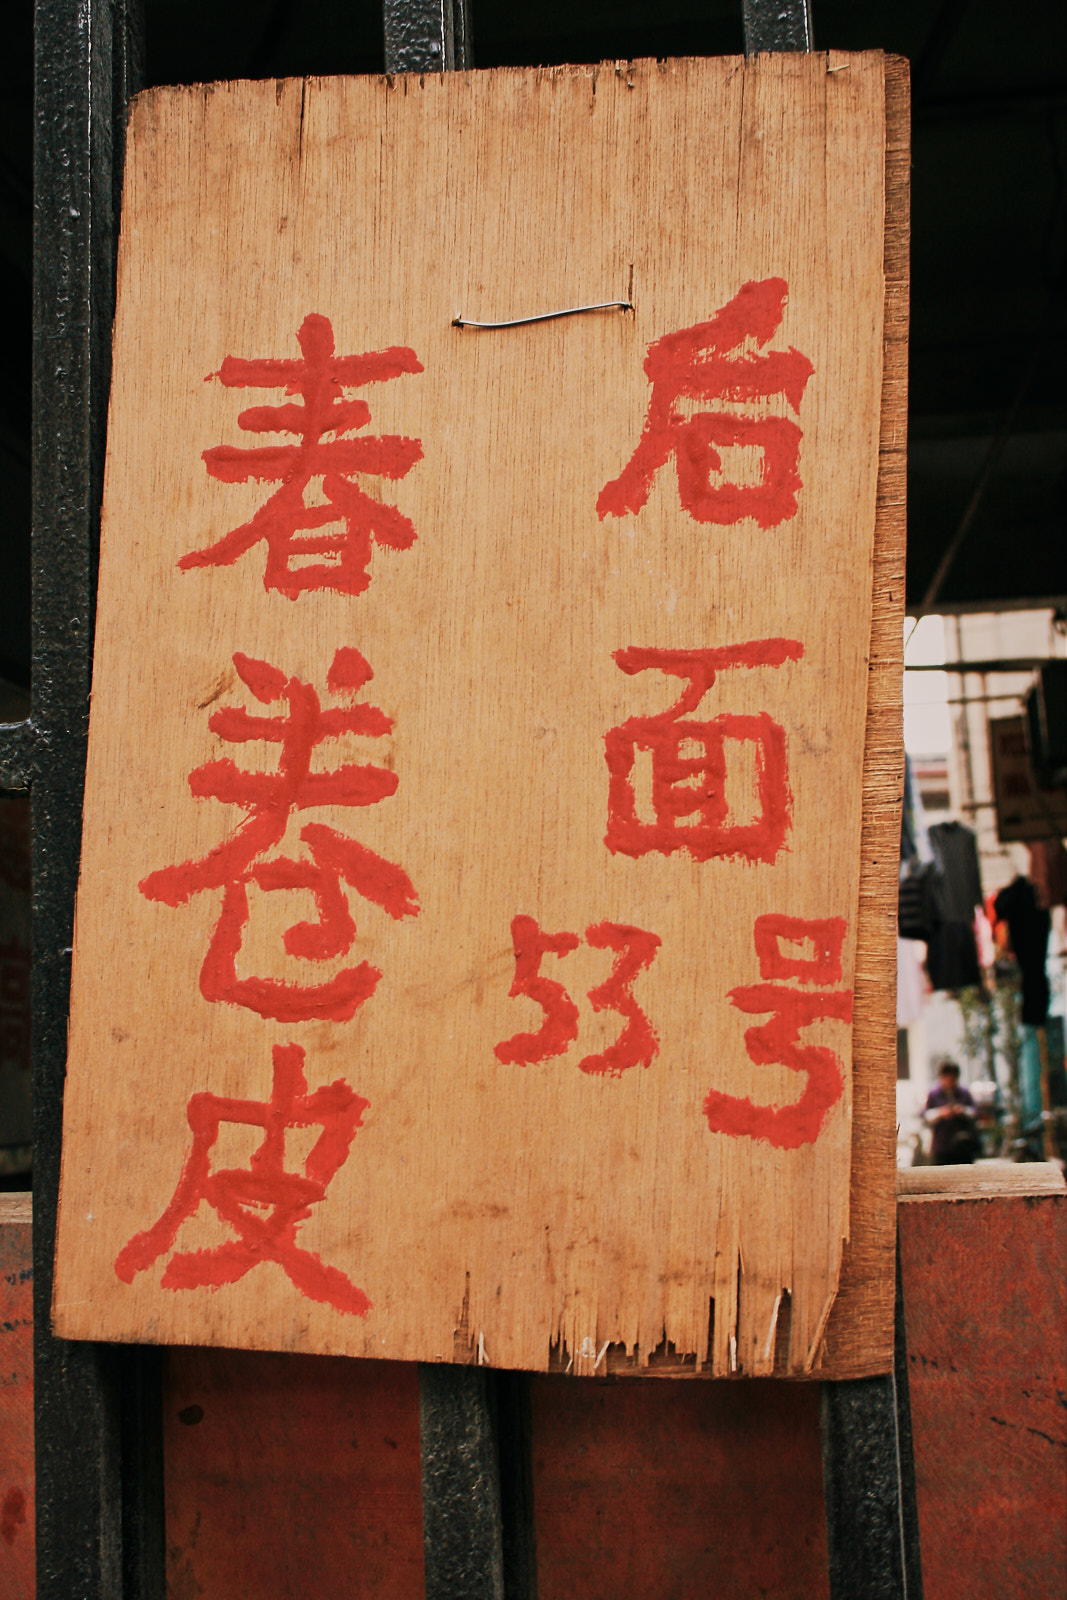 后面
53号
春卷皮